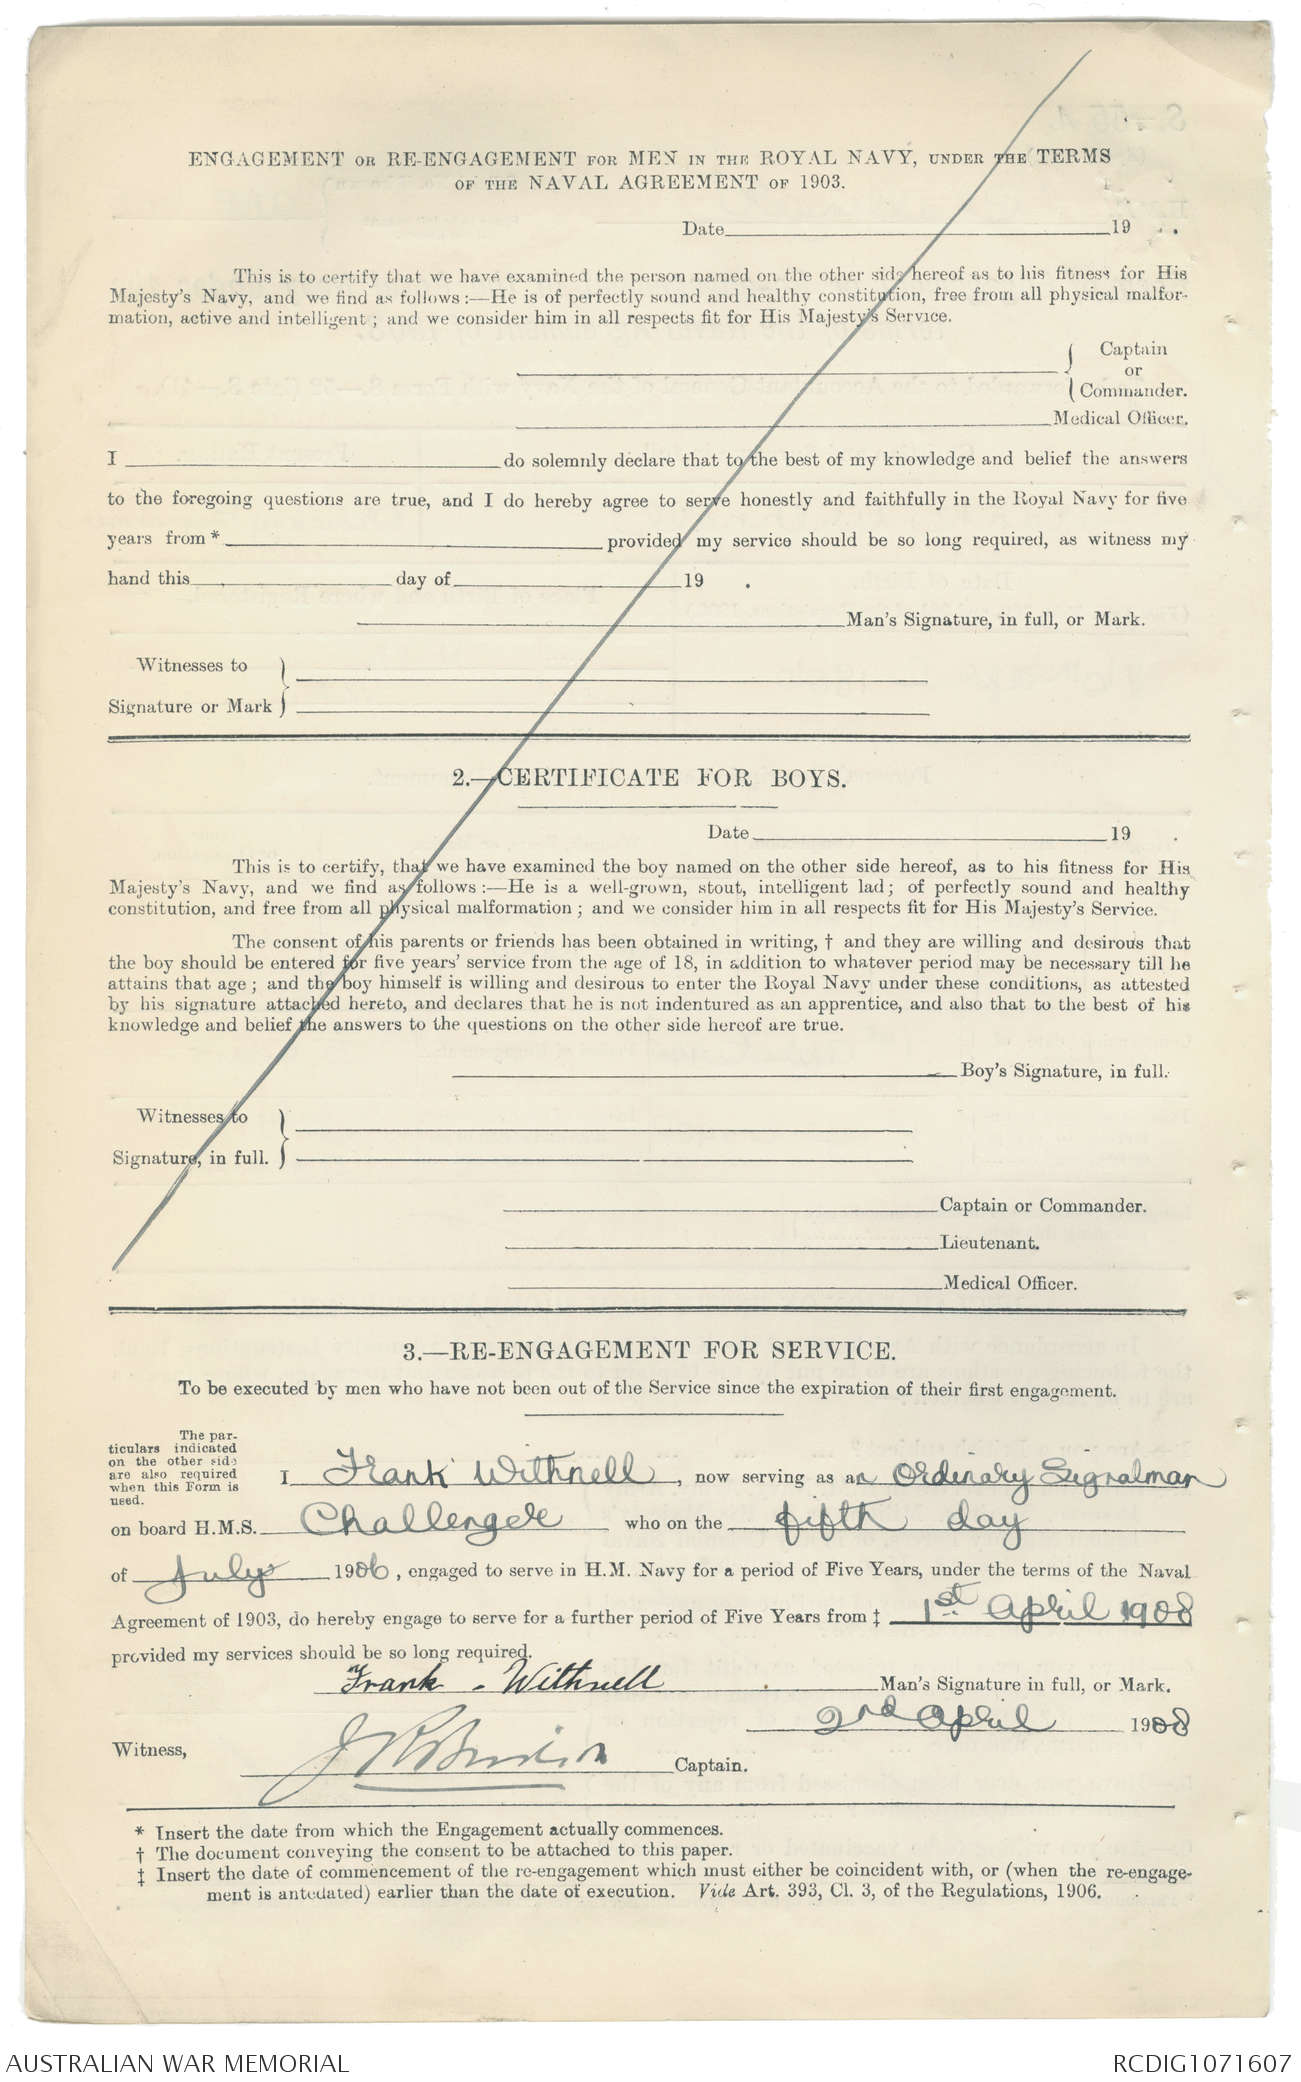 ENGAGEMENT OR RE-ENGAGEMENT FOR MEN IN THE ROYAL NAVY, UNDER THE TERMS
OF THE NAVAL AGREEMENT OF 1903.
Date 19 .
This is to certify that we have examined the person named on the other side hereof as to his fitness for His
Majesty's Navy, and we find as follows:—He is of perfectly sound and healthy constitution, free from all physical malfor-
mation, active and intelligent; and we consider him in all respects fit for His Majesty's Service.
Captain
or
Commander.
Medical Officer.
I do solemnly declare that to the best of my knowledge and belief the answers
to the foregoing questions are true, and I do hereby agree to serve honestly and faithfully in the Royal Navy for five
years from * provided my service should be so long required, as witness my
hand this day of 19 .
Man's Signature, in full, or Mark.
Witnesses to
Signature or Mark
2.—CERTIFICATE FOR BOYS.
Date 19 .
This is to certify, that we have examined the boy named on the other side hereof, as to his fitness for His
Majesty's Navy, and we find as follows:—He is a well-grown, stout, intelligent lad; of perfectly sound and healthy
constitution, and free from all physical malformation; and we consider him in all respects fit for His Majesty's Service.
The consent of his parents or friends has been obtained in writing, † and they are willing and desirous that
the boy should be entered for five years' service from the age of 18, in addition to whatever period may be necessary till he
attains that age; and the boy himself is willing and desirous to enter the Royal Navy under these conditions, as attested
by his signature attached hereto, and declares that he is not indentured as an apprentice, and also that to the best of his
knowledge and belief the answers to the questions on the other side hereof are true.
Boy's Signature, in full.
Witnesses to
Signature, in full.
Captain or Commander.
Lieutenant.
Medical Officer.
3.—RE-ENGAGEMENT FOR SERVICE.
To be executed by men who have not been out of the Service since the expiration of their first engagement.
The par-
ticulars indicated
on the other side
are also required
when this Form is
used.
I Frank Withnell, now serving as an Ordinary Signalman
on board H.M.S. Challenger who on the fifth day
of July 1906, engaged to serve in H.M. Navy for a period of Five Years, under the terms of the Naval
Agreement of 1903, do hereby engage to serve for a further period of Five Years from ‡ 1st April 1908
provided my services should be so long required.
Frank - Withnell Man's Signature in full, or Mark.
2nd April 1908
Witness, Captain.
* Insert the date from which the Engagement actually commences.
† The document conveying the consent to be attached to this paper.
‡ Insert the date of commencement of the re-engagement which must either be coincident with, or (when the re-engage-
ment is antedated) earlier than the date of execution. Vide Art. 393, Cl. 3, of the Regulations, 1906.
AUSTRALIAN WAR MEMORIAL
RCDIG1071607